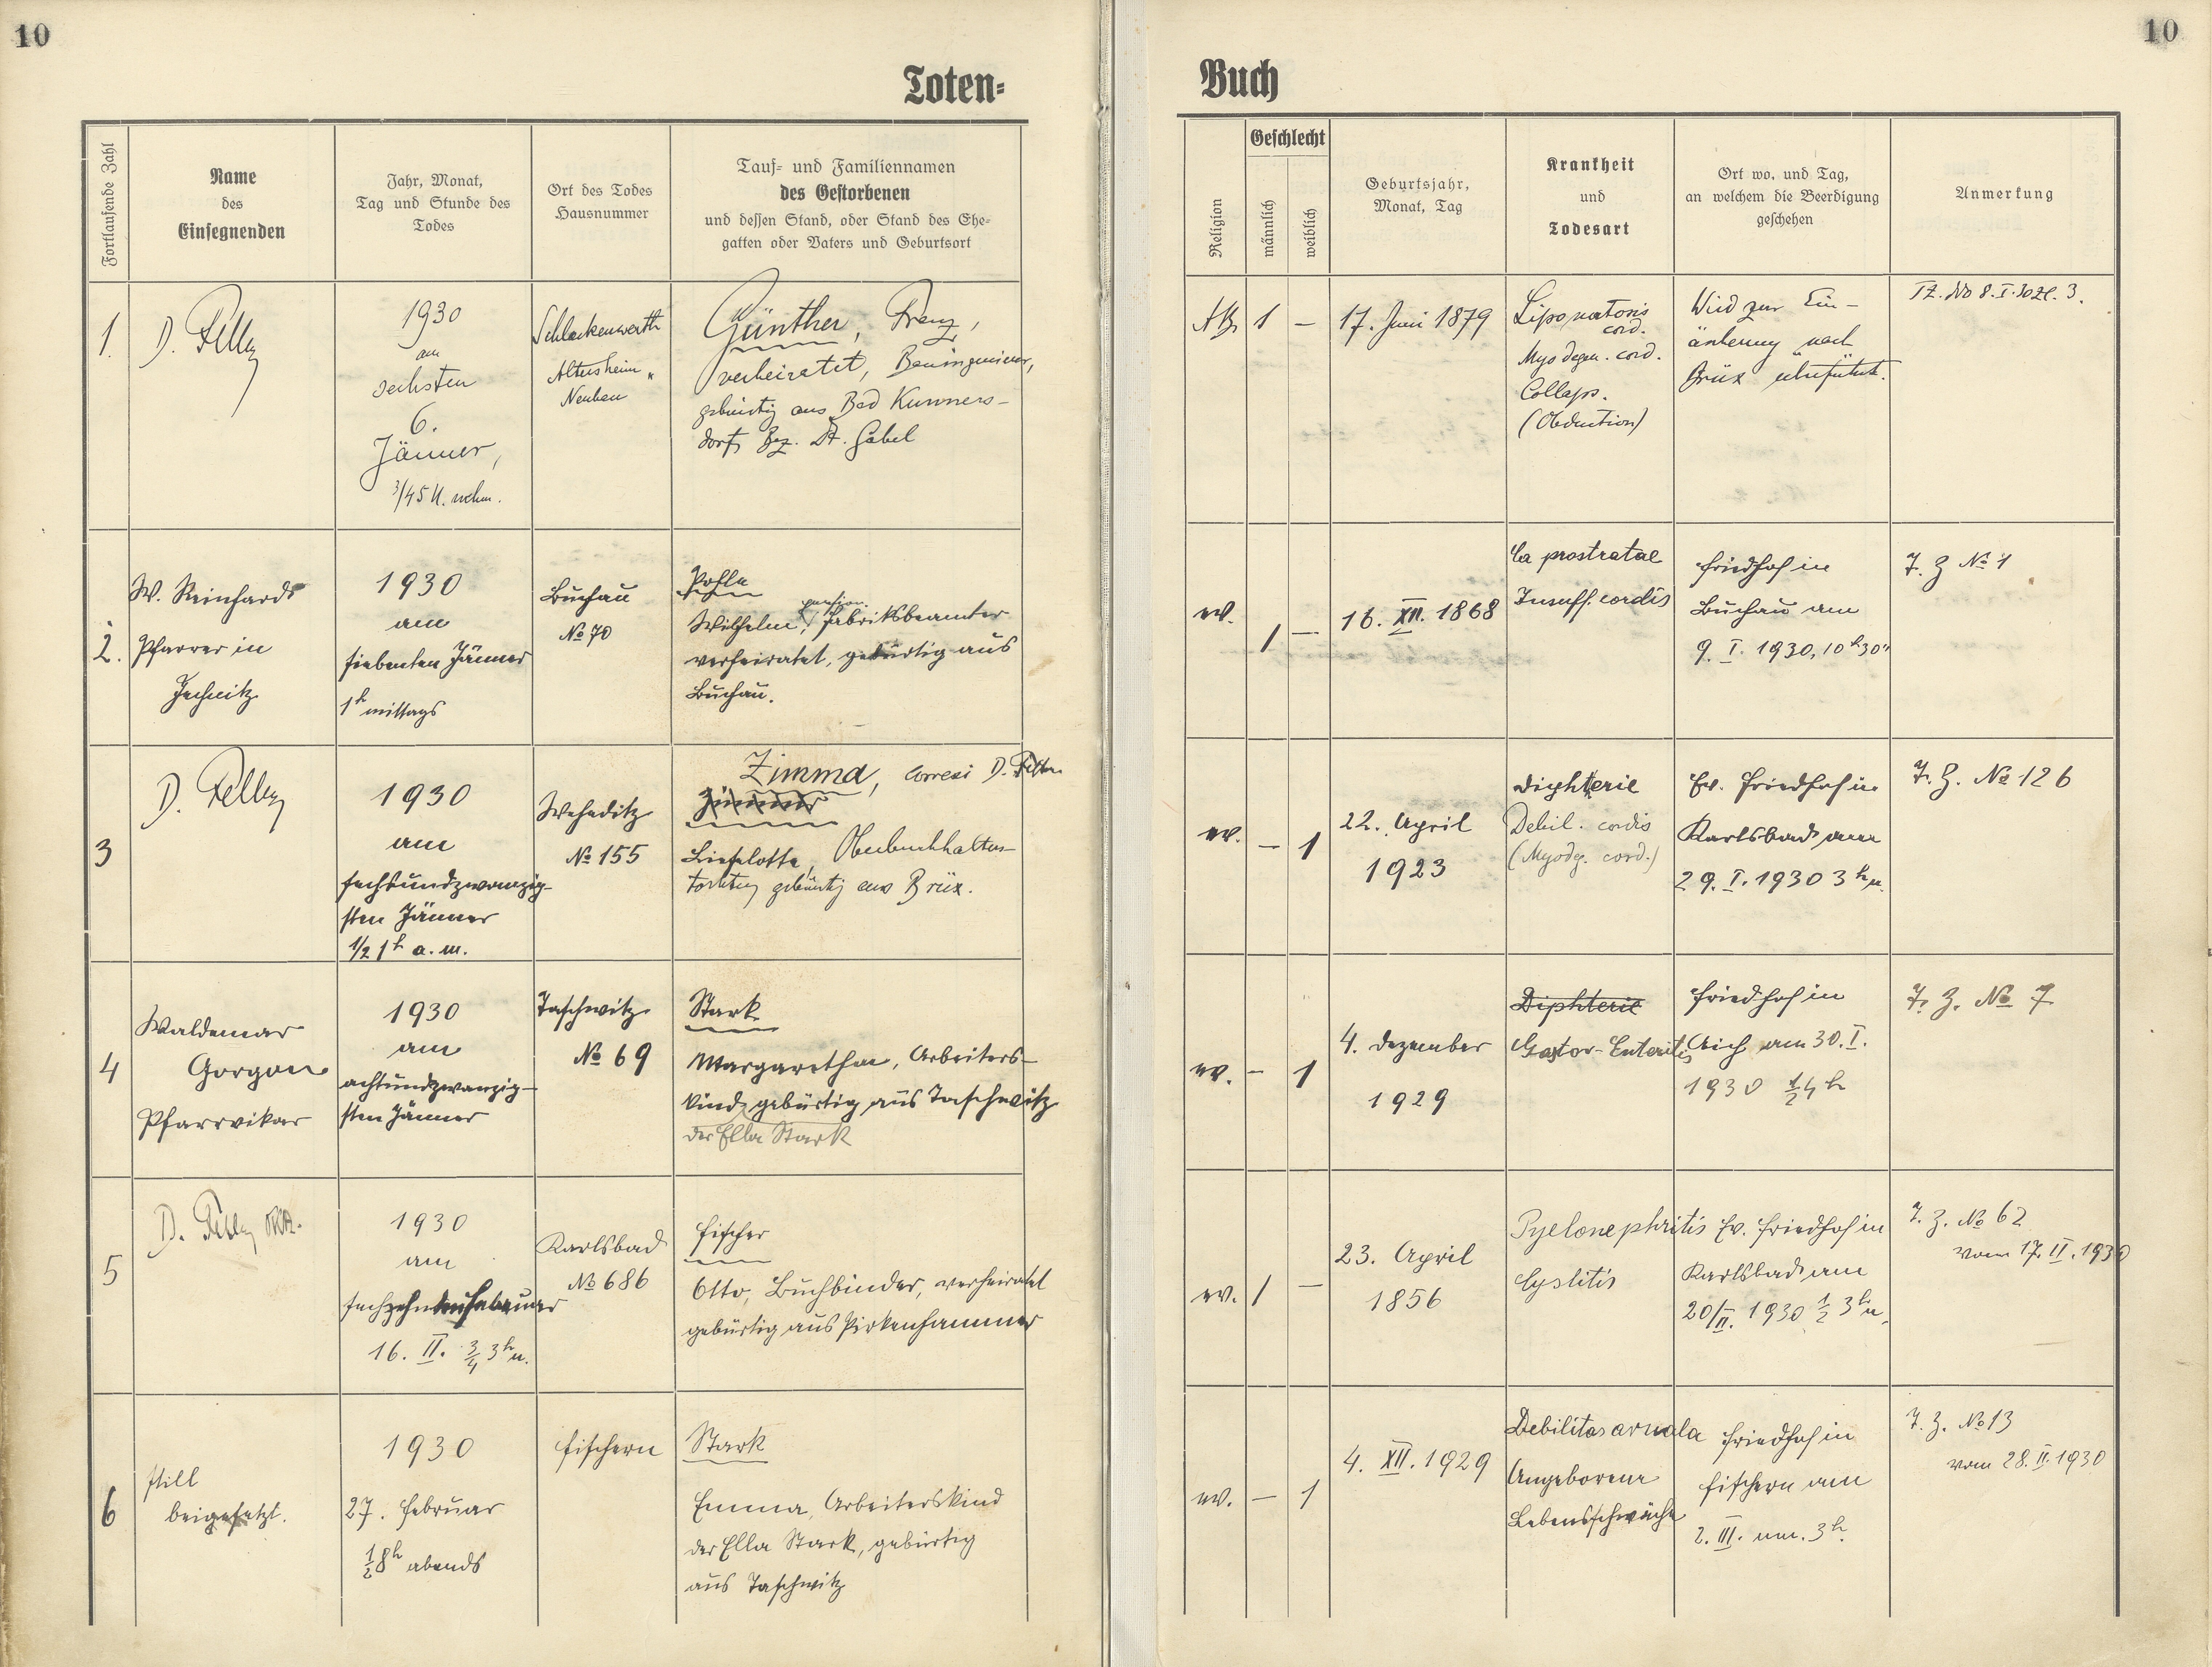 10
10
Toten=
Buch
Fortlaufende Zahl
Name
des
Einsegnenden
Jahr, Monat,
Tag und Stunde des
Todes
Ort des Todes
Hausnummer
Tauf= und Familiennamen
des Gestorbenen
und dessen Stand, oder Stand des Ehe=
gatten oder Vaters und Geburtsort
Religion
Geschlecht
männlich
weiblich
Geburtsjahr,
Monat, Tag
Krankheit
und
Todesart
Ort wo, und Tag,
an welchem die Beerdigung
geschehen
Anmerkung
1.
D.
1930
am
sechsten
6.
Jänner,
3/4 5 U. nchm.
Schlackenwerth
Altersheim
Neubau
Günther, Franz,
verheiratet, Bauingenieur,
gebürtig aus Bad Kunners-
dorf, Bez. Dt. Gabel
AB
1
–
17. Juni 1879
cord.
Myodegen. cord.
Collaps.
(Obduction)
Wird zur Ein-
äscherung nach
Brüx überführt.
TZ. No 8. I. 30 Zl. 3.
2.
W. Reinhardt
Pfarrer in
Jechnitz
1930
am
siebenten Jänner
1h mittags
Buchau
No 70
Wilhelm, pension. Fabriksbeamter
verheiratet, gebürtig aus
Buchau.
ev.
1
–
16. XII. 1868
Ca prostatae
Insuff. cordis
Friedhof in
Buchau am
9. I. 1930, 10h 30
T. Z No 1
3
D.
1930
am
sechsundzwanzig-
sten Jänner
1/2 1h a. m.
Weheditz
No 155
Zimma, correxi D.
Zimmer
Lieselotte, Oberbuchhalters-
tochter, gebürtig aus Brüx.
ev.
–
1
22. April
1923
Diphterie
Debil. cordis
(Myodg. cord.)
Ev. Friedhof in
Karlsbad am
29. I. 1930 3h n.
T. Z. No 126
4
Waldemar
Gorgon
Pfarrvikar
1930
am
achtundzwanzig-
sten Jänner
Taschwitz
No 69
Stark
Margarethe, Arbeiters-
kind, gebürtig aus Taschwitz
der Ella Stark
ev.
–
1
4. Dezember
1929
Diphterie
Gastor-Enteritis
Friedhof in
Aich am 30. I.
1930 1/2 4h
T. Z. No 7
5
D.
1930
am
sechzehnten Februar
16. II. 3/4 3h n.
Karlsbad
No 686
Fischer
Otto, Buchbinder, verheiratet
gebürtig aus Pirkenhammer
ev.
1
–
23. April
1856
Pyelonephritis
Cystitis
Ev. Friedhof in
Karlsbad am
20/II. 1930 1/2 3h n.
T. Z. No 62
vom 17. II. 1930
6
still
beigesetzt.
1930
27. Februar
1/2 8h abends
Fischern
Stark
Emma, Arbeiterskind
der Ella Stark, gebürtig
aus Taschwitz
ev.
–
1
4. XII. 1929
Debilitas
Angeborene
Lebensschwäche
Friedhof in
Fischern am
2. III. um 3h.
T. Z. No 13
vom 28. II. 1930